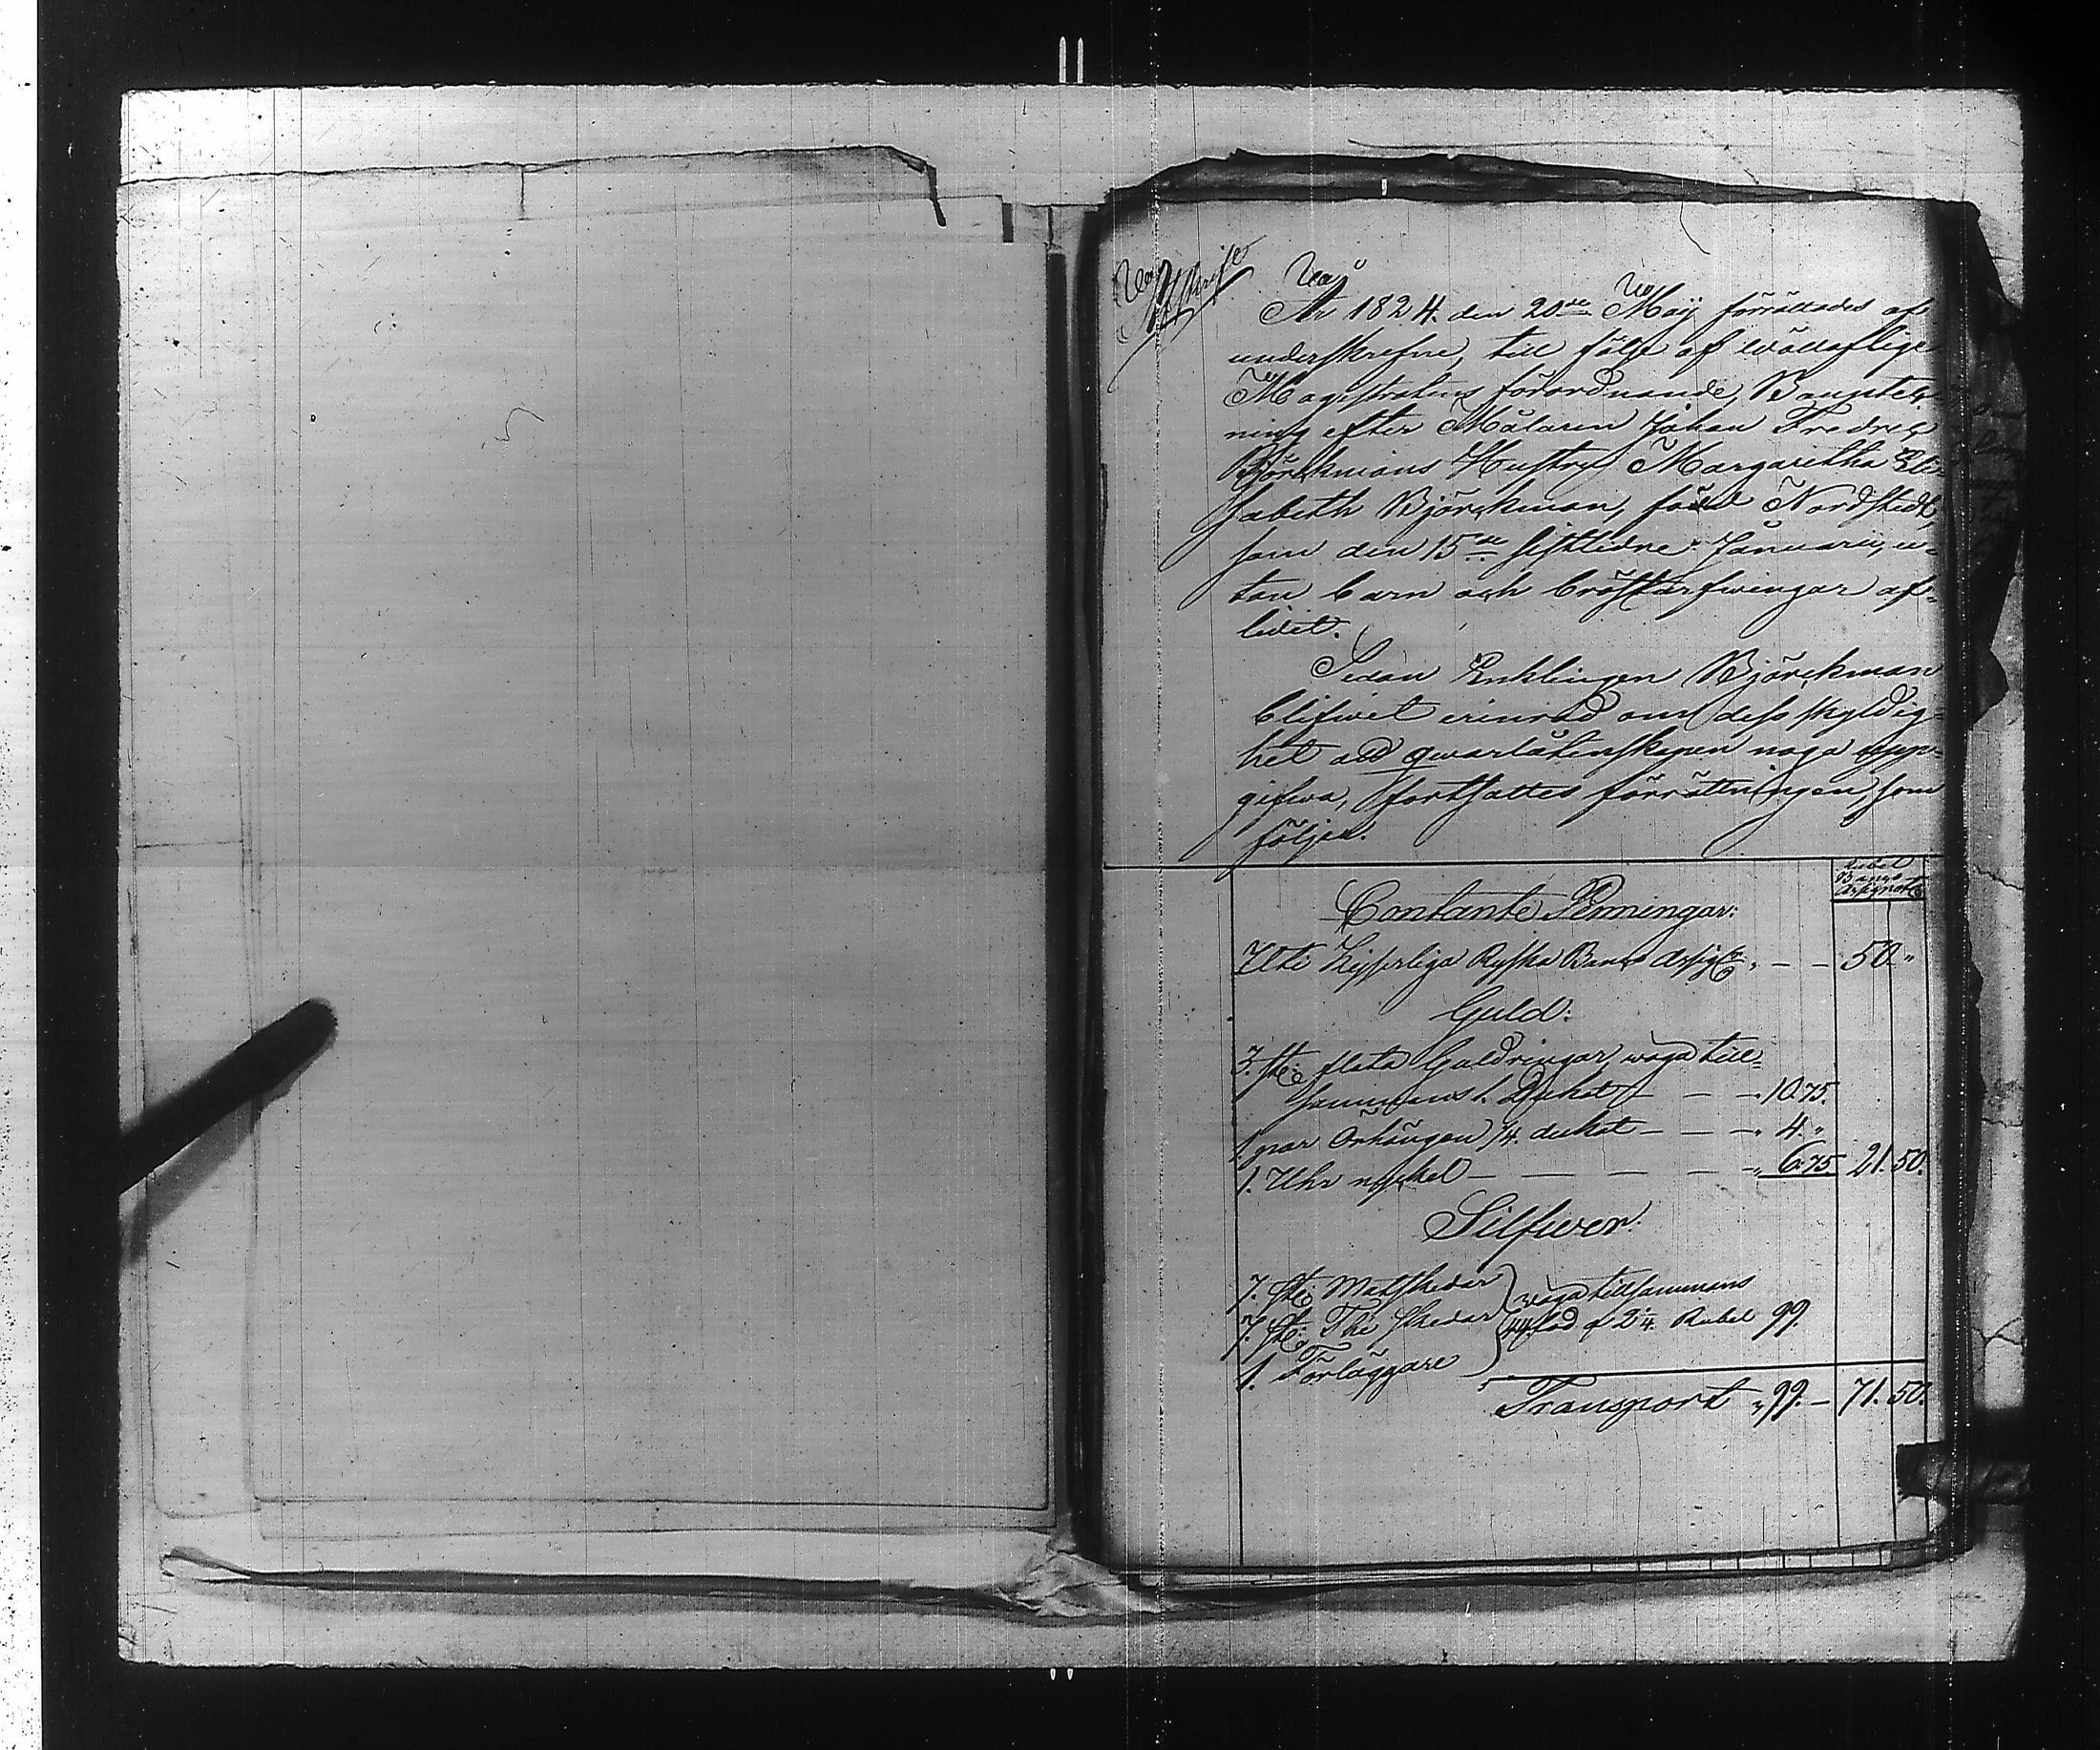 Afskrift
År 1824. den 20de Maij förrättades af
underskrefne, till följe af Wällofliga
Magistratens förordnande, Bouptek-
ning efter Målaren Johan Fredric
Björckmans Hustru Margaretha Eli-
sabeth Björckman, född Nordstedt,
som den 15de sistledne Januarii, u-
tan barn och bröstarfwingar af-
lidit.
Sedan Enklingen Björckman
blifwit erinrad om dess skyldig-
het ad qwarlåtenskapen noga upp-
gifwa, fortsattes förrättningen, som
följer.
Rubel
Banco
Assignat
Contante Penningar:
Uti Kejserliga Ryska Banco Assig „ — — 50 „
Guld:
3. st: släta Guldringar wäga till-
sammans 1. Dukat — — — 10.75.
1. par Örhängen 1/4. dukat — — — „ 4. „
1. Uhr nyckel — — — — — „ 6.75. 21.50.
Silfwer.
7. st: Matskedar
wäga tillsammans
7. st: The skedar
44. lod a 2 1/4. Rubel 99.
1. Förläggare
Transport „ 99. — 71.50.